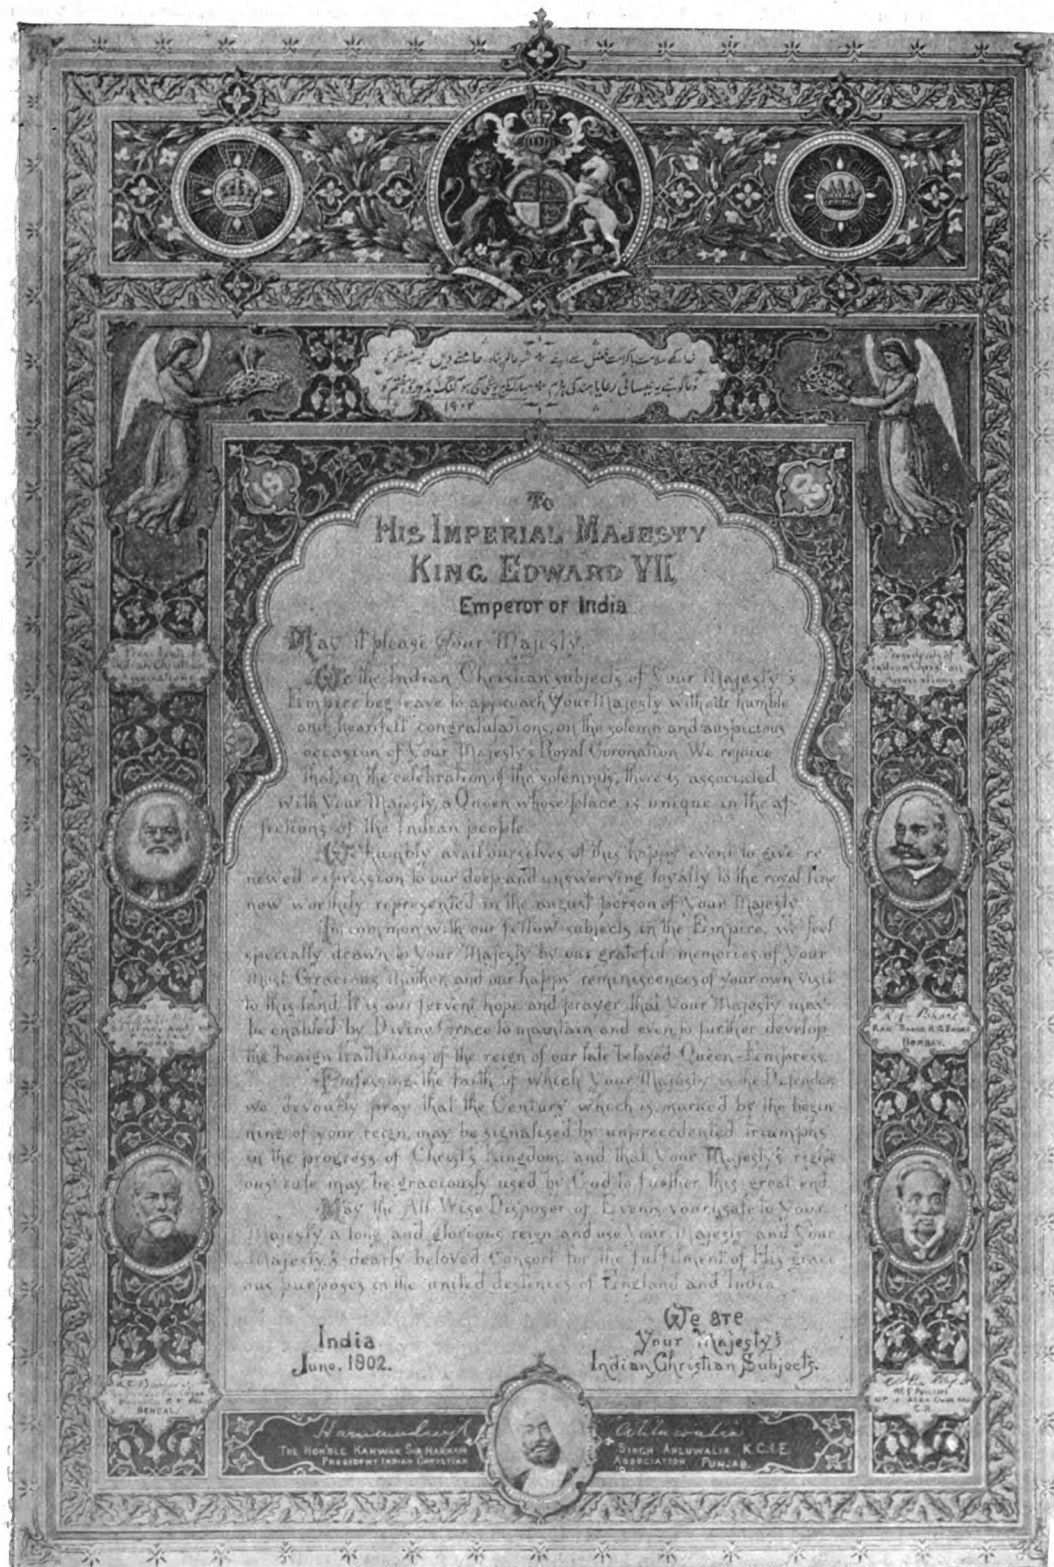 ۱۹۰۲
To
His Imperial Majesty
King Edward VII.
Emperor of India
May it please Your Majesty.
We the Indian Christian subjects of Your Majesty's
Empire beg leave to approach Your Majesty with our humble
and heartfelt congratulations on the solemn and auspicious
occasion of Your Majesty's Royal Coronation. We rejoice
that in the celebration of the solemnity, there is associated
with Your Majesty, a Queen whose place is unique in the af-
fections of the Indian people.
We humbly avail ourselves of this happy event to give re-
newed expression to our deep and unswerving loyalty to the royal line
now worthily represented in the august person of Your Majesty
In common with our fellow subjects in the Empire, we feel
specially drawn to Your Majesty by our grateful memories of Your
Most Gracious Mother and our happy reminiscences of your own visit
to this land. It is our fervent hope and prayer that Your Majesty may
be enabled by Divine Grace to maintain and even to further develop
the benign traditions of the reign of our late beloved Queen-Empress.
Professing the faith of which Your Majesty is the Defender
we devoutly pray that the Century which is marked by the begin
ning of your reign may be signalised by unprecedented triumphs
in the progress of Christ's Kingdom, and that Your Majesty's
rule may be graciously used by God to further this great end.
May the All Wise Disposer of Events vouchsafe to Your
Majesty a long and glorious reign and use Your Majesty and Your
Majesty's dearly beloved Consort for the fulfilment of His grac
ious purposes in the united destinies of England and India.
We are
Your Majesty's
Indian Christian Subjects.
India
June. 1902.
Bombay.
Bengal
Harnam Singh Ahluwalia
The Honble Kanwar Sir Harnam Singh Ahluwalia K.C.I.E
President Indian Christian Association Punjab